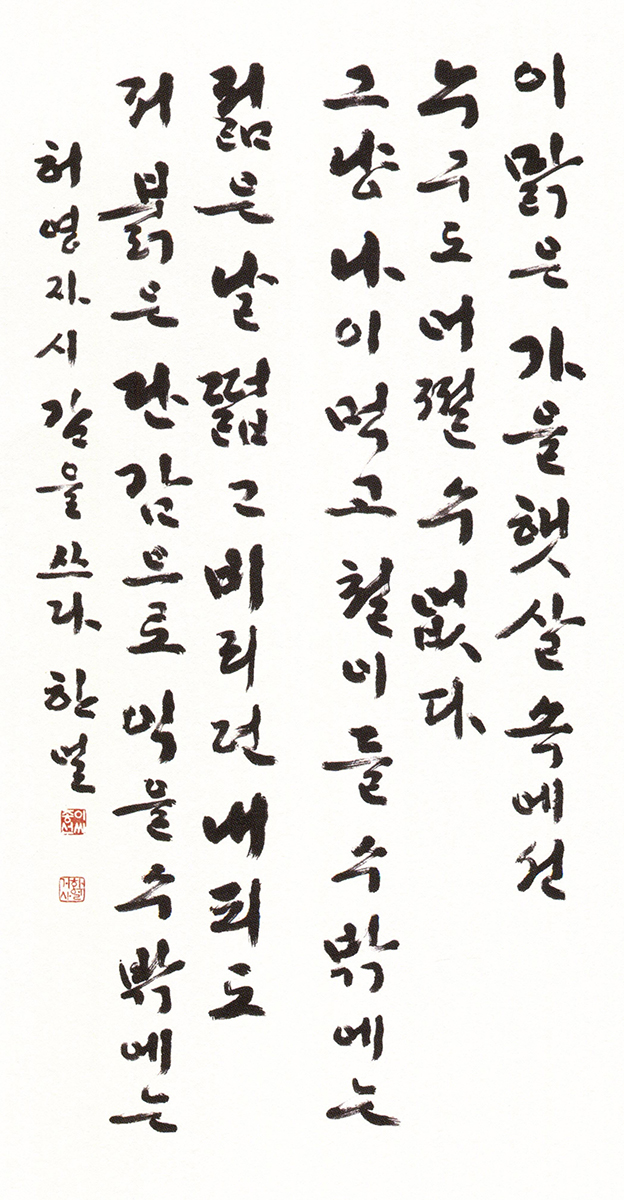 이 맑은 가을 햇살 속에선
누구도 어쩔 수 없다
그냥 나이 먹고 철이 들 수밖에는
젊은 날 떫고 비리던 내 피도
저 붉은 단감으로 익을 수밖에는
허영자 시 감을 쓰다 한별